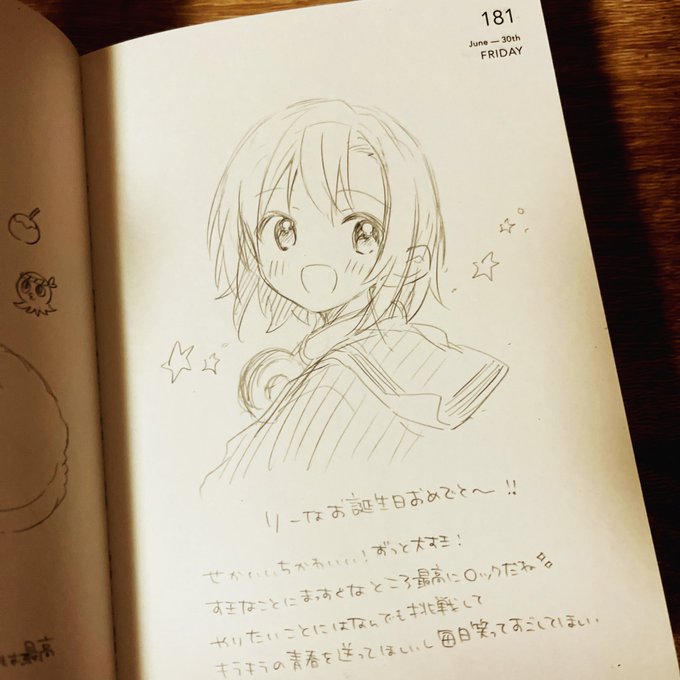 181
June — 30th
FRIDAY
りーなお誕生日おめでと〜!!
せかいいちかわいい!ずっと大すき!
すきなことにまっすぐなところ最高にロックだね
やりたいことにはなんでも挑戦して
キラキラの青春を送ってほしいし毎日笑ってすごしてほしい
最高